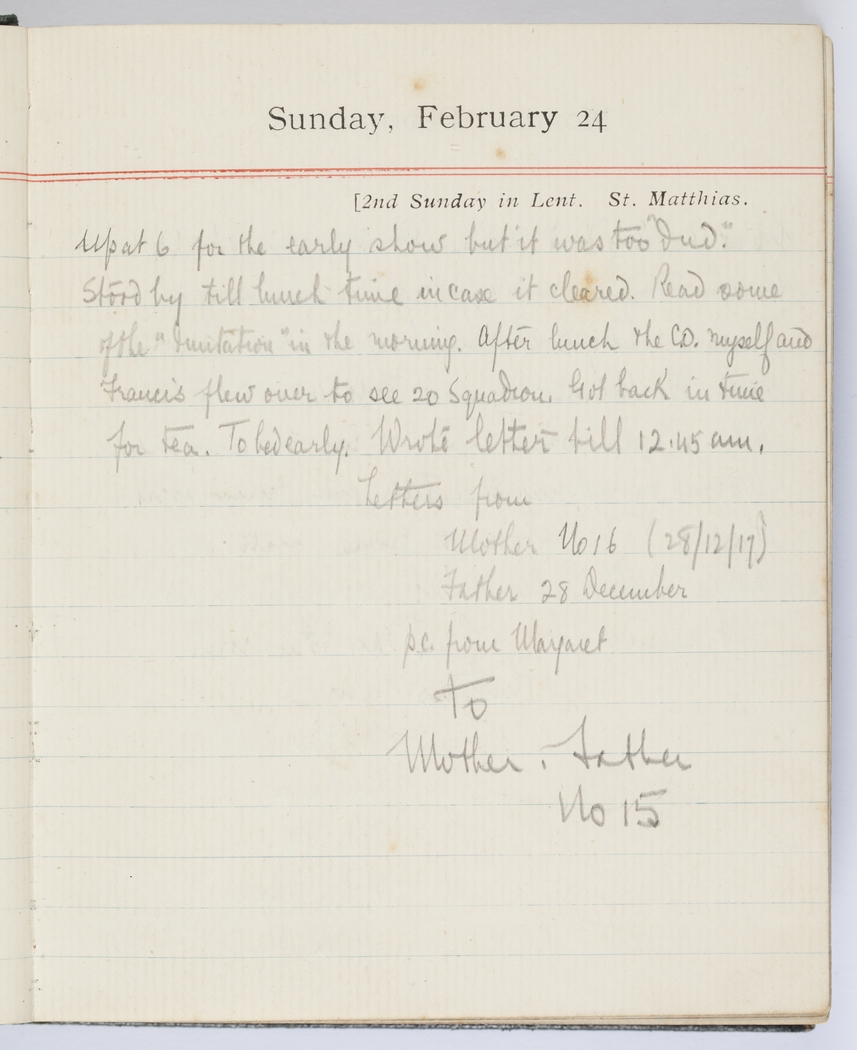 Sunday, February 24
[2nd Sunday in Lent. St. Matthias.
Up at 6 for the early show but it was too "dud."
Stood by till lunch time in case it cleared. Read some
of the "Imitation" in the morning. After lunch the CO. myself and
Francis flew over to see 20 Squadron. Got back in time
for tea. To bed early. Wrote letters till 12.45 am.
Letters from
Mother No 16 (28/12/17)
Father 28 December
p.c. from Margaret
To
Mother. Father
No 15